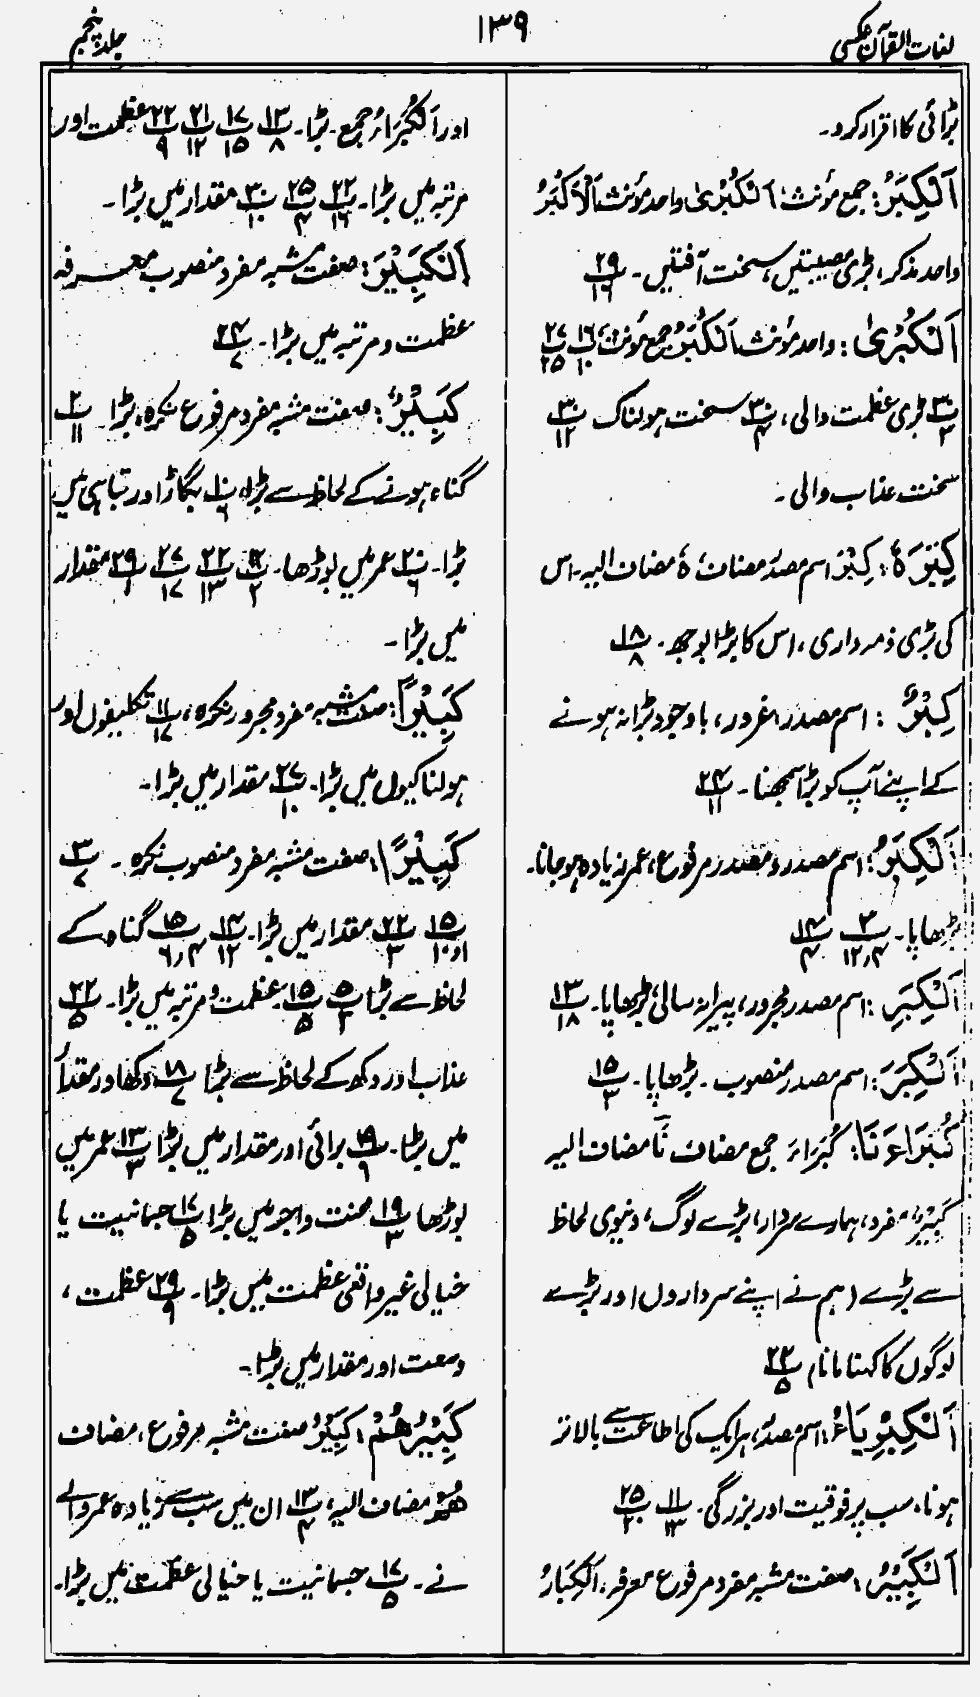 لغات القرآن عکسی
۱۳۹
جلد پنجم
بڑائی کا اقرار کرو۔
اَلْکُبَرُ: جمع مؤنث، اَلْکُبْرٰی واحد مؤنث اَلْاَکْبَرُ
واحد مذکر، بڑی مصیبتیں، سخت آفتیں۔ ۲۹/۱۶
اَلْکُبْرٰی: واحد مؤنث اَلْکُبَرُ جمع مؤنث، ۱۶/۱۰ ۲۷/۲۵
۳۰/۲ بڑی عظمت والی، ۳۰/۴ سخت ہولناک ۳۰/۱۲
سخت عذاب والی۔
کِبْرَهٗ: کِبْرَ اسم مصدر مضاف، هٗ مضاف الیہ۔ اس
کی بڑی ذمہ داری، اس کا بڑا بوجھ۔ ۱۸/۸
کِبْرٌ: اسم مصدر، غرور، باوجود بڑا نہ ہونے
کے اپنے آپ کو بڑا سمجھنا۔ ۲۴/۱۱
اَلْکِبَرُ: اسم مصدر و مصدر مرفوع، عمر زیادہ ہوجانا۔
بڑھاپا۔ ۳/۱۲،۴ ۱۴/۴
اَلْکِبَرِ: اسم مصدر مجرور، پیرانہ سالی، بڑھاپا۔ ۱۳/۱۸
اَلْکِبَرَ: اسم مصدر منصوب۔ بڑھاپا۔ ۱۵/۳
کُبَرَاءَنَا: کُبَرَاءَ جمع مضاف نَا مضاف الیہ
کَبِیْرٌ، مفرد، ہمارے سردار، بڑے لوگ، دنیوی لحاظ
سے بڑے (ہم نے اپنے سرداروں اور بڑے
لوگوں کا کہنا مانا) ۲۲/۵
اَلْکِبْرِیَاءُ: اسم مصدر، ہر ایک کی اطاعت سے بالاتر
ہونا، سب پر فوقیت اور بزرگی۔ ۱۱/۱۳ ۲۵/۲۰
اَلْکَبِیْرُ: صفت مشبہ مفرد مرفوع معرفہ، اَلْکِبَارُ
اور اَلْکُبَرَاءُ جمع۔ بڑا۔ ۱۳/۸ ۱۷/۱۵ ۲۱/۱۲ ۲۲/۹ عظمت اور
مرتبہ میں بڑا۔ ۲۲/۱۶ ۲۵/۴ ۳۰/۱۰ مقدار میں بڑا۔
اَلْکَبِیْرَ: صفت مشبہ مفرد منصوب معرفہ
عظمت و مرتبہ میں بڑا۔ ۲۴/۷
کَبِیْرٌ: صفت مشبہ مفرد مرفوع نکرہ، بڑا۔ ۲/۱۱
گناہ ہونے کے لحاظ سے بڑا، ۱۰/۶ بگاڑ اور تباہی میں
بڑا۔ ۲۰/۶ عمر میں بوڑھا۔ ۱۲/۲ ۲۲/۱۳ ۲۷/۱۷ ۲۹/۱ مقدار
میں بڑا۔
کَبِیْرٍ: صفت مشبہ مفرد مجرور نکرہ، ۱۱/۱۷ تکلیفوں اور
ہولناکیوں میں بڑا۔ ۲۷/۱۰ مقدار میں بڑا۔
کَبِیْرًا: صفت مشبہ مفرد منصوب نکرہ۔ ۳/۷
۱۵/۱۰ ۲۲/۳ مقدار میں بڑا۔ ۱۴/۱۲ ۱۵/۶،۴ گناہ کے
لحاظ سے بڑا ۵/۲ ۱۵/۵ عظمت و مرتبہ میں بڑا۔ ۲۲/۵
عذاب اور دکھ کے لحاظ سے بڑا ۱۸/۷ دکھ اور مقدار
میں بڑا۔ ۱۹/۶ برائی اور مقدار میں بڑا ۱۳/۳ عمر میں
بوڑھا ۱۹/۳ محنت و اجر میں بڑا ۱۷/۵ جسمانیت یا
خیالی غیر واقعی عظمت میں بڑا۔ ۲۹/۹ عظمت،
وسعت اور مقدار میں بڑا۔
کَبِیْرُهُمْ: کَبِیْرُ صفت مشبہ مرفوع، مضاف
هُمْ مضاف الیہ، ۱۳/۴ ان میں سب سے زیادہ عمر والے
نے۔ ۱۷/۵ جسمانیت یا خیالی عظمت میں بڑا۔